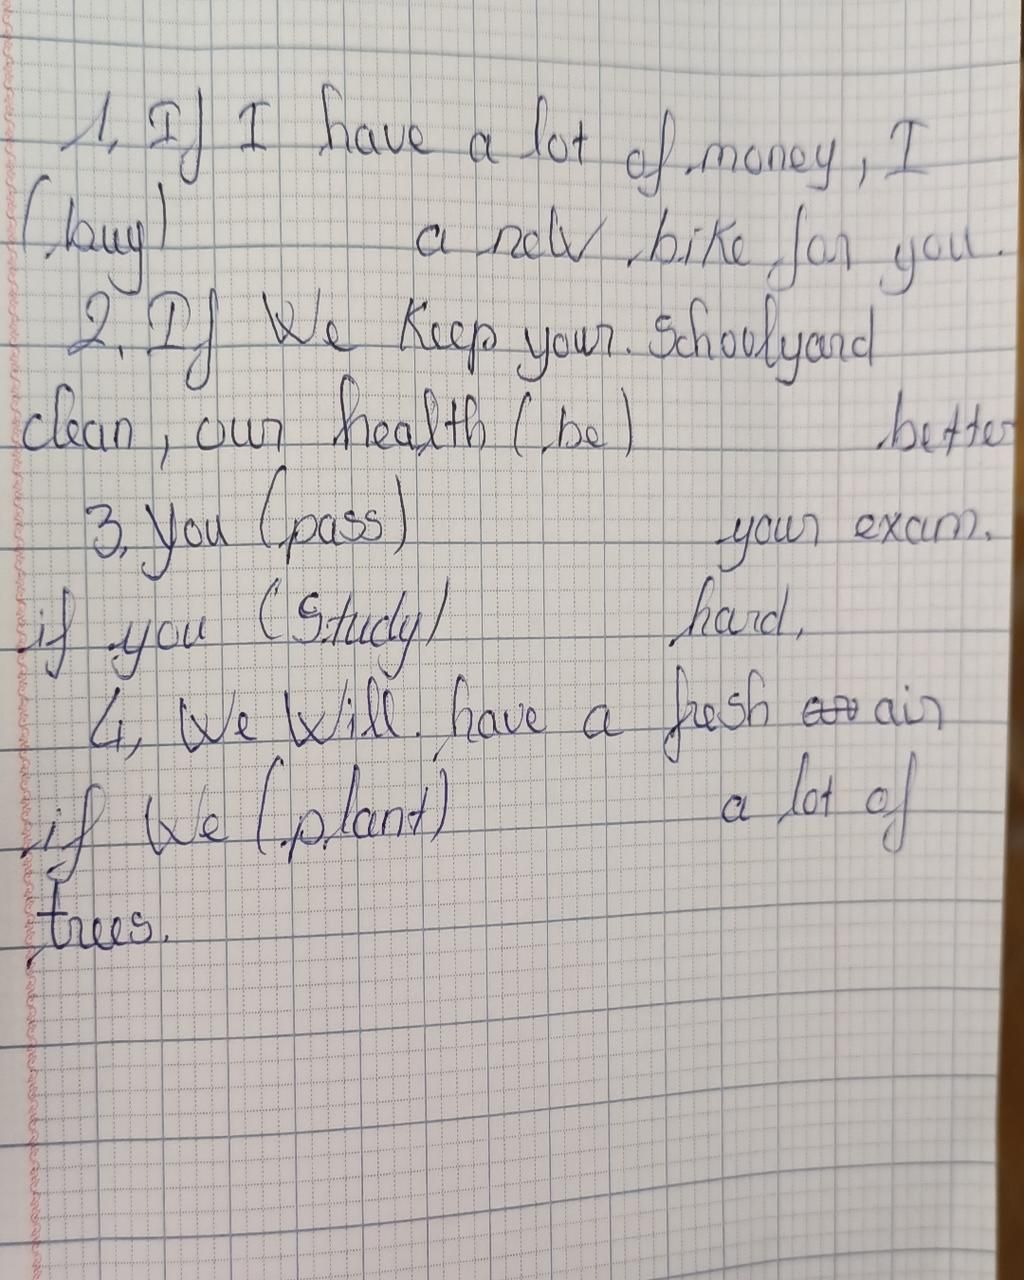 1, If I have a lot of money, I
(buy) a new bike for you.
2. If We Keep your Schoolyard
clean, our health (be) better
3, You (pass) your exam.
if you (Study) hard.
4, We Will have a fresh air
if We (plant) a lot of
trees.